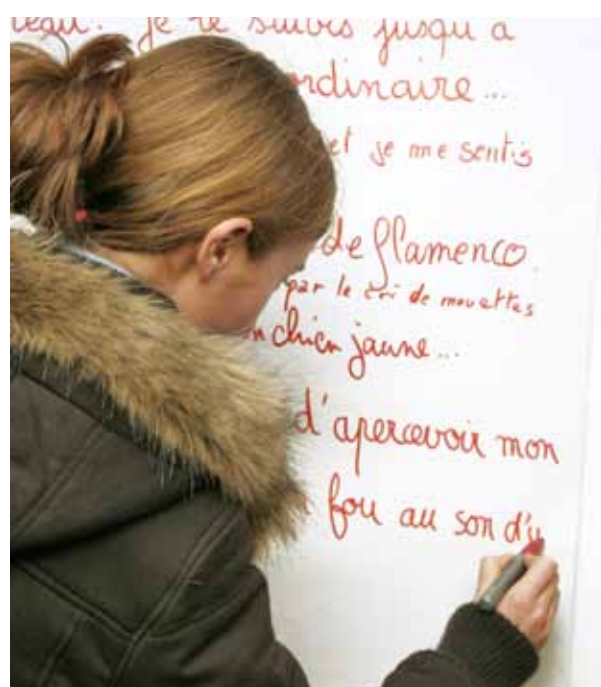 je le suivis jusqu'a
ordinaire...
et je me sentis
de flamenco.
par le cri de mouettes
chien jaune...
d'apercevoir mon
fou au son d'u